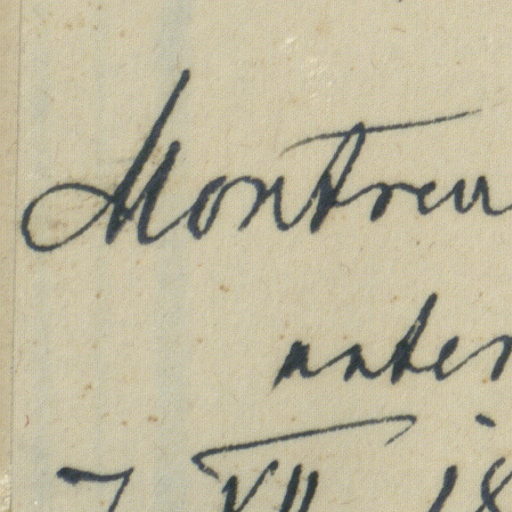 Montreu
unter
7 VII 18